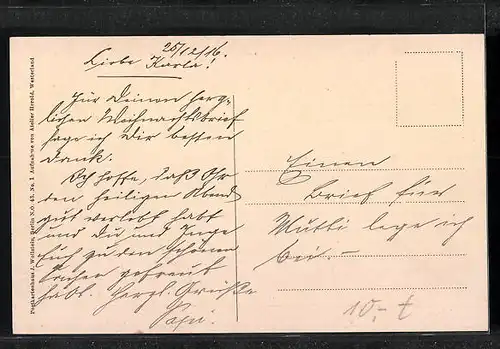 25/12/16.
Liebe Karla!
Für Deinen herz-
lichen Weihnachtsbrief
sage ich Dir besten
Dank.
Ich hoffe, daß Ihr
den heiligen Abend
gut verlebt habt
und Du und Inge
Euch zu den schönen
Sachen gefreut
habt. Herzl. Grüße
Papi.
Einen
Brief für
Mutti lege ich
bei.-
10,- t
Postkartenhaus J. Wollstein, Berlin N.O. 43. No. 1 Aufnahme von Atelier Herold, Westerland